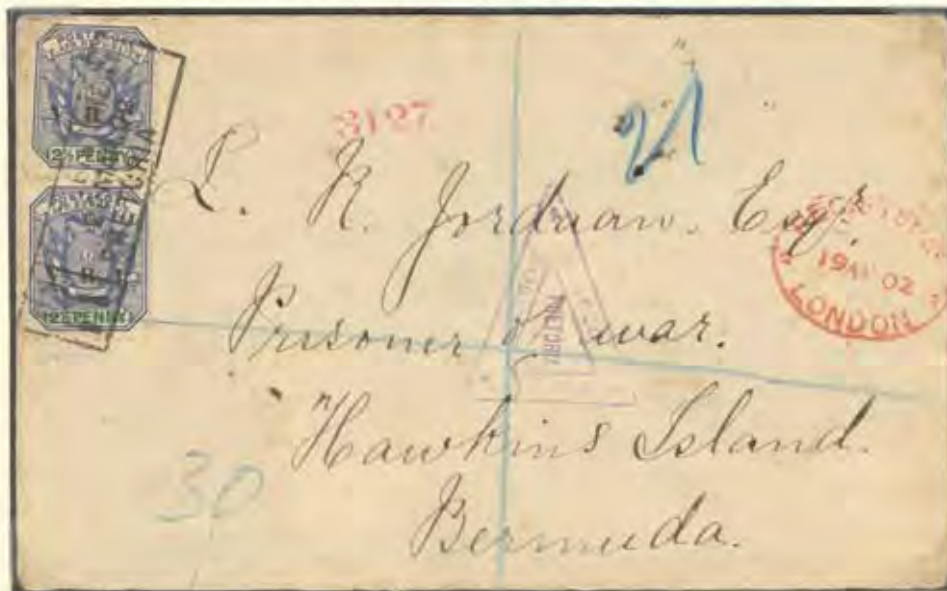 POSTZEGEL
2½ PENNY
2½ PENNY
PRETORIA
3127
21
L. R. Jordaan. Esqr.
Prisoner of war.
Hawkins Island.
Bermuda.
PRETORIA
REGISTERED
19 AP 02
LONDON
30